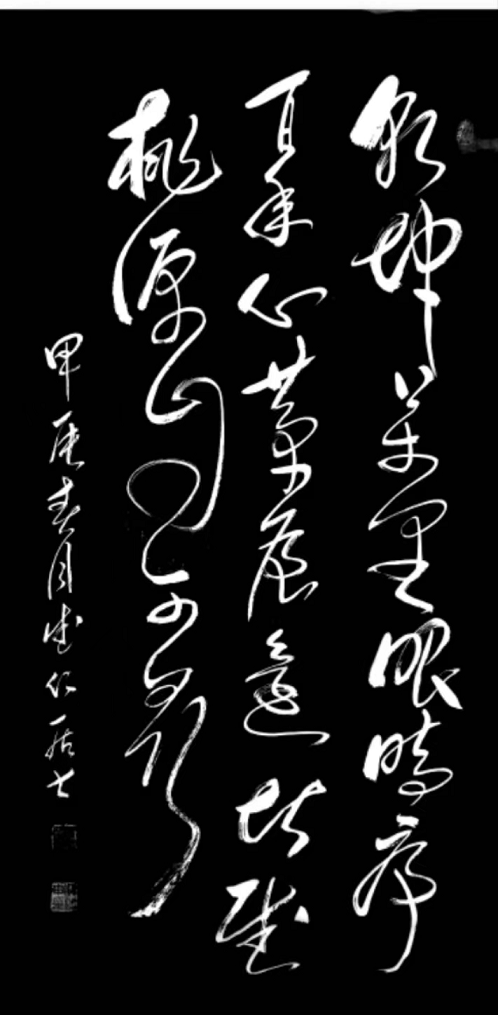 乾坤萬里眼時序
百年心茅屋還堪賦
桃源自可尋
甲辰春月仁居士